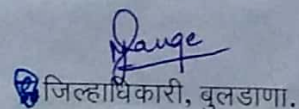 जिल्हाधिकारी, बुलडाणा.